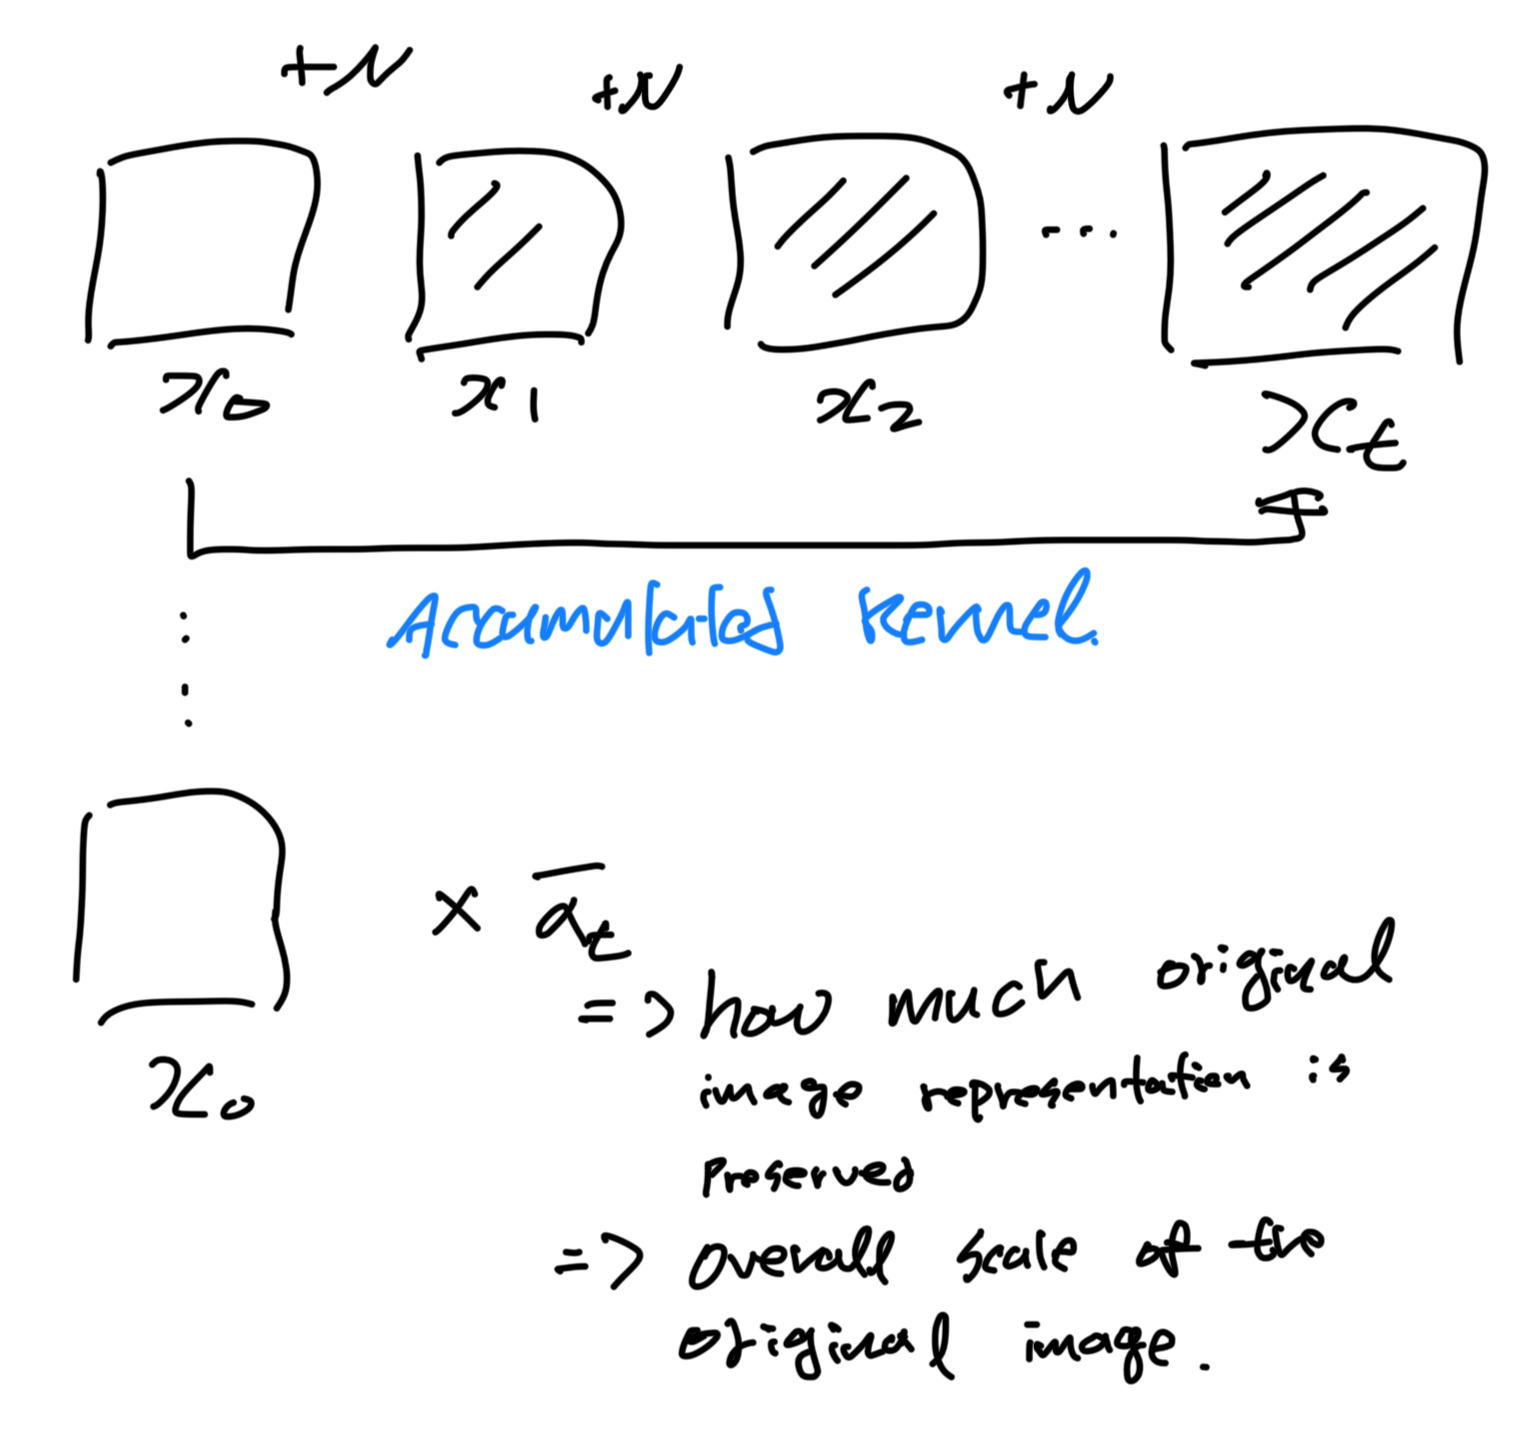 +N +N +N
x₀ x₁ x₂ ... xₜ
Accumulated kernel.
x₀ × ᾱₜ
=> how much original
image representation is
preserved
=> overall scale of the
original image.